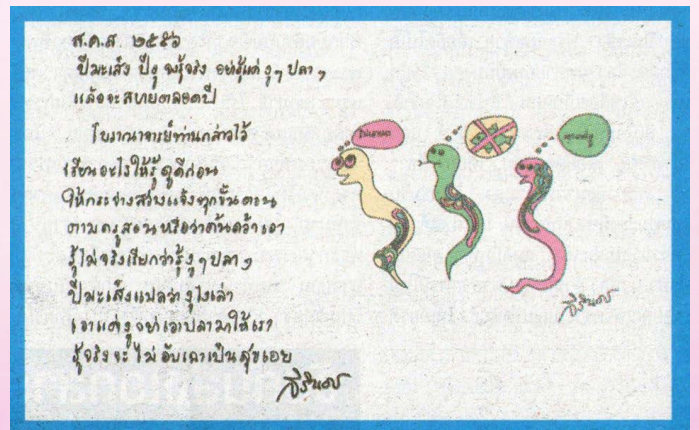 ส.ค.ส ๒๕๕๖
ปีมะเส็ง ปีงู จงรู้จริง อย่ารู้แค่ งูๆ ปลาๆ
แล้วจะสบายตลอดปี
โบราณาจารย์ท่านกล่าวไว้
เรียนอะไรให้รู้ดูดีก่อน
ให้กระจ่างสว่างแจ้งทุกขั้นตอน
ตามครูสอนหรือว่าค้นคว้าเอา
รู้ไม่จริงเรียกว่ารู้งูๆปลาๆ
ปีมะเส็งแปลว่างูไงเล่า
เอาแต่งูอย่าเอาปลามาให้เรา
รู้จริงจะไม่อับเฉาเป็นสุขเอย
สิรินธร
ไม่เอาปลา
สิรินธร